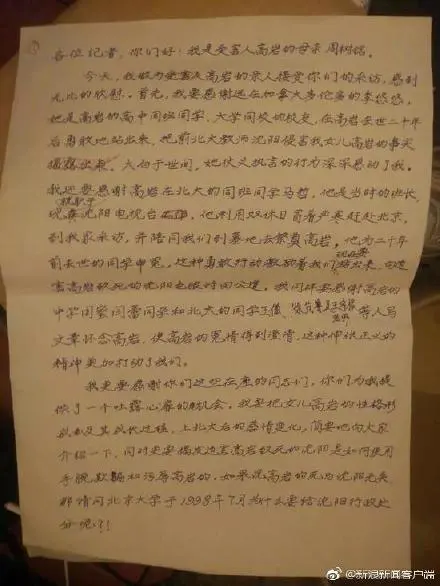 各位记者，你们好！我是受害人高岩的母亲周树铭。
今天，我做为受害人高岩的亲人接受你们的采访，感到
无比的欣慰。首先，我要感谢远在加拿大多伦多的李悠悠，
她是高岩的高中同班同学、大学同校的校友，在高岩去世二十年
后勇敢地站出来，把前北大教师沈阳侵害我女儿高岩的事实
揭露出来，大白于世间，她仗义执言的行为深深感动了我。
我还要感谢高岩在北大的同班同学 他是当时的班长，
现 沈阳电视台 他利用双休日冒着严寒赶赴北京，
到我家采访，并陪同我们到墓地去祭奠高岩，他为二十年
前去世的同学申冤。这种勇敢行动激励着我们站出来，向迫
现在要
害高岩致死的沈阳也做时间公道。我同样要感谢高岩的
中学闺蜜闫蕾同学和北大的同学王 等人写
文章怀念高岩，使高岩的冤情得到澄清，这种伸张正义的
精神更加打动了我们。
我更要感谢你们这些在座的同志们，你们为我提
供了一个吐露心扉的机会。我要把女儿高岩的性格形
成以及其成长过程，上北大后的感情变化，简要地向大家
介绍一下，同时更要揭发迫害高岩致死的沈阳是如何使用
手腕欺骗和污辱高岩的。如果说高岩的死与沈阳无关
那请问北京大学于1998年7月为什么要给沈阳行政处
分呢？！
@新浪新闻客户端